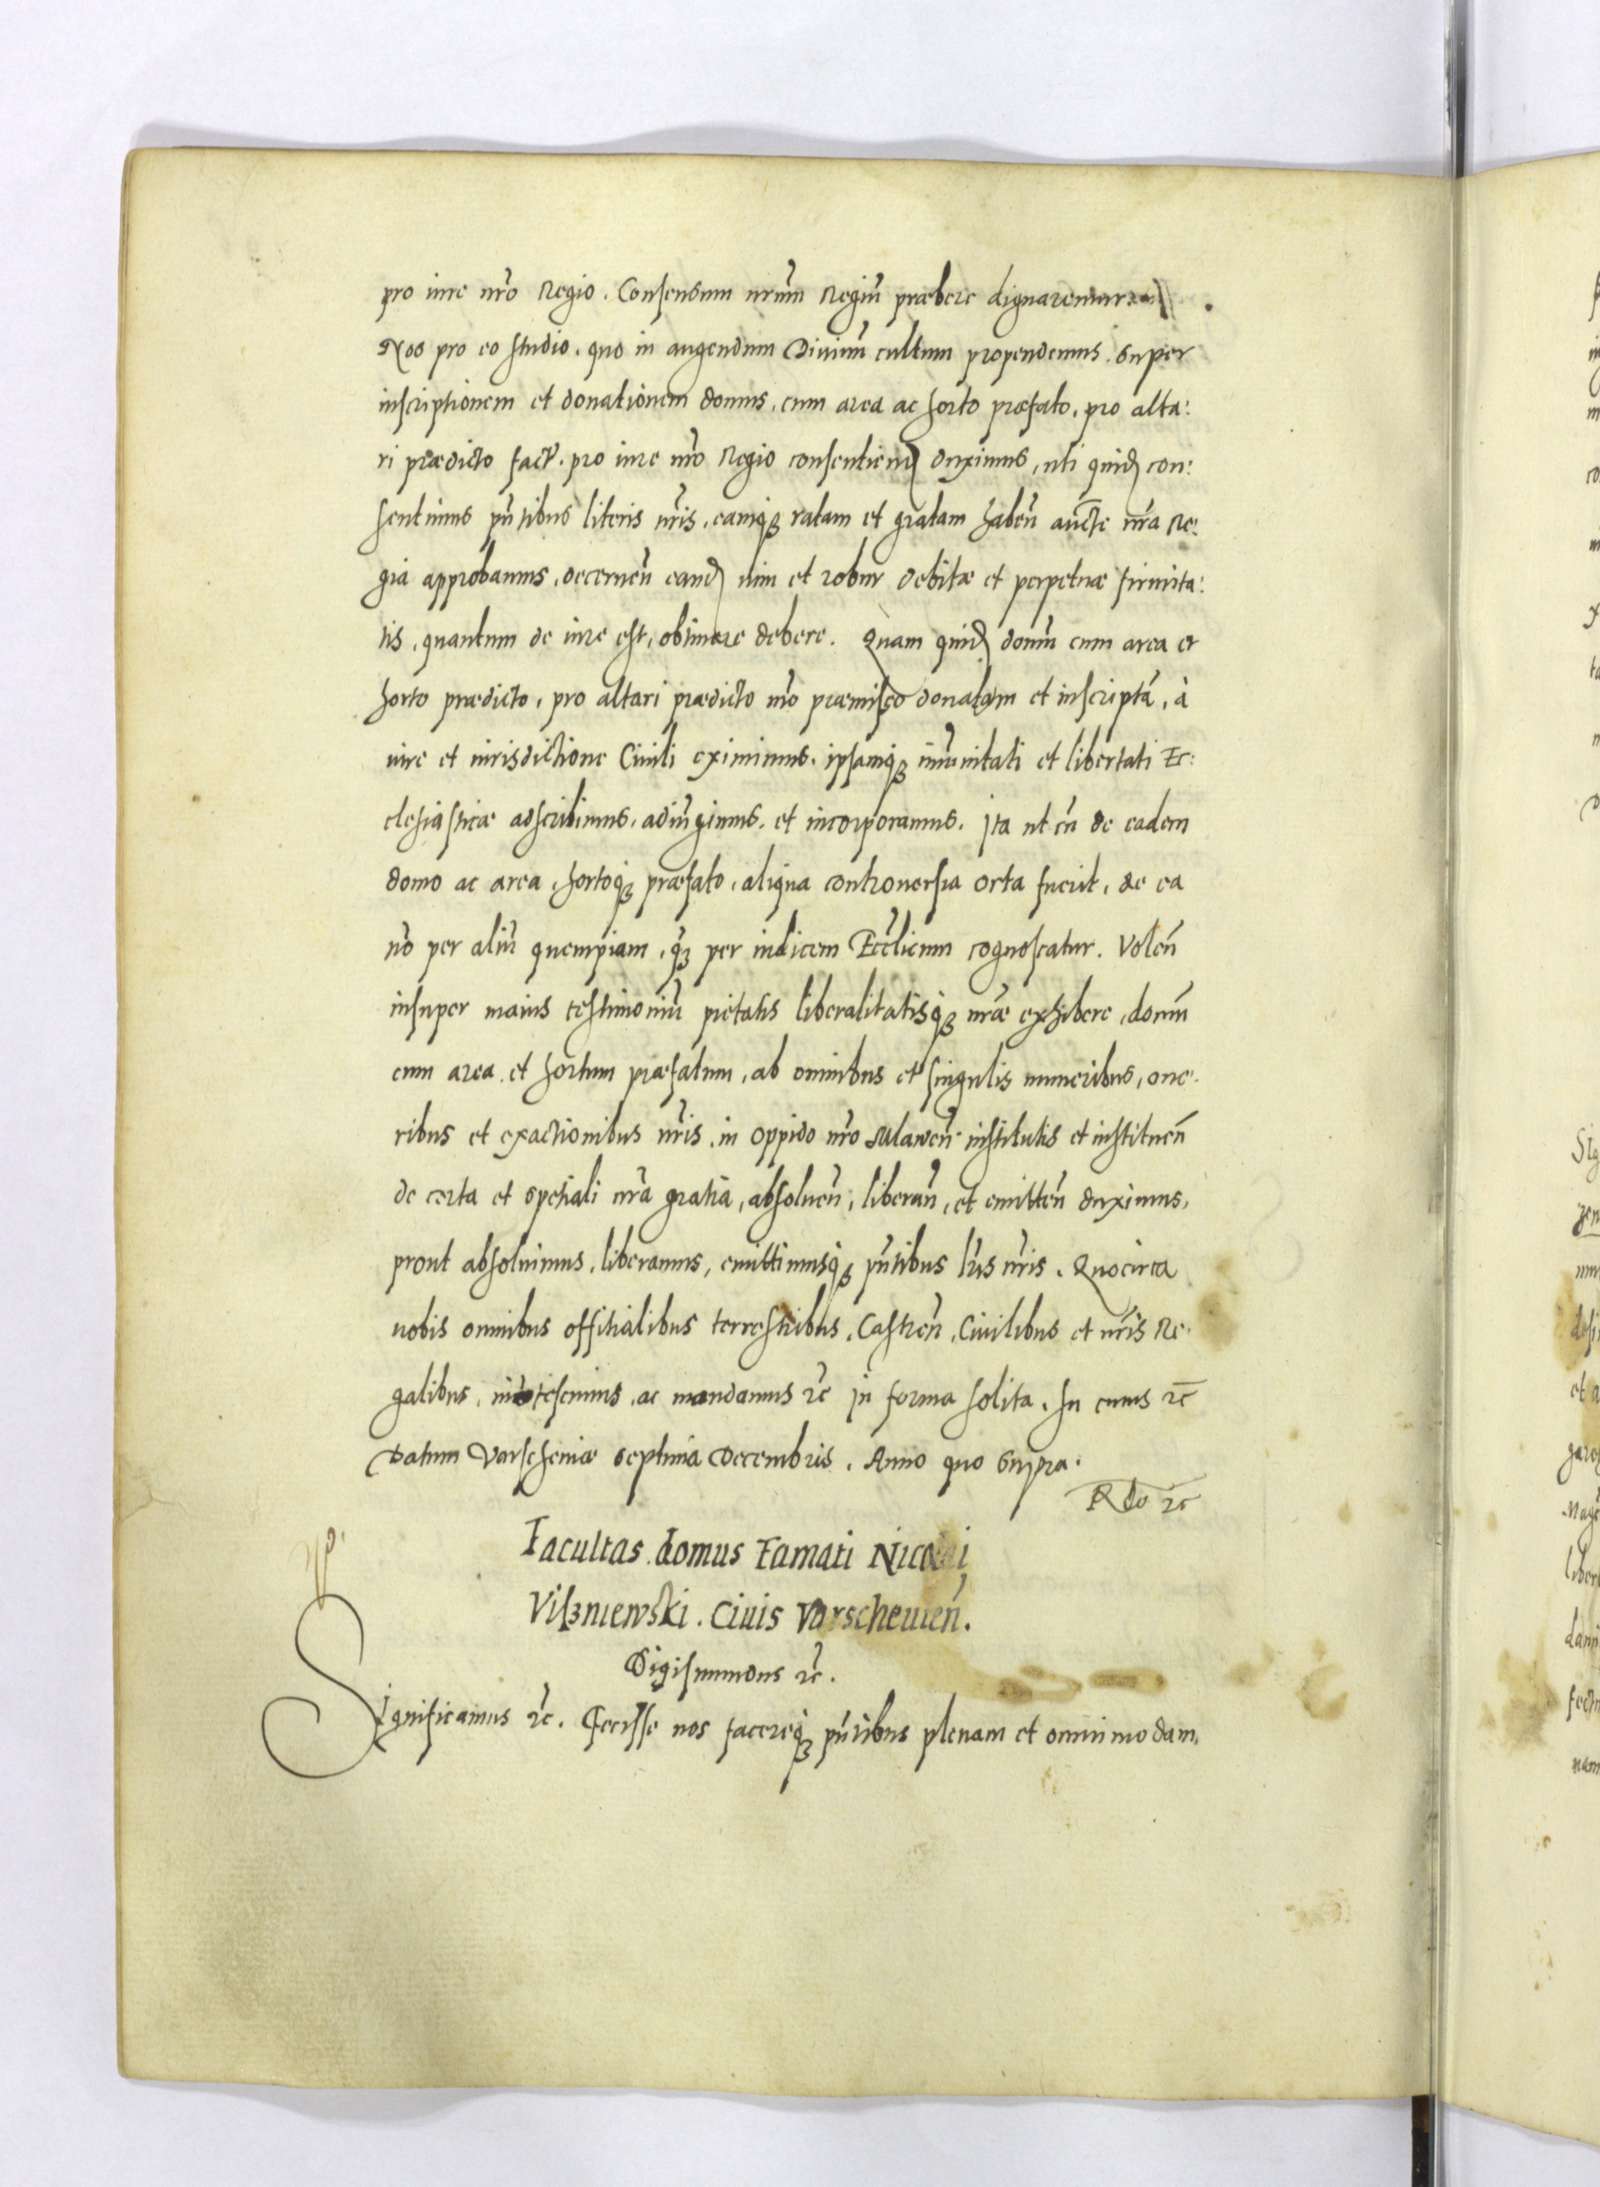 pro iure nr̃o Regio. Consensum nrũm Regiũ præbere dignaremur
Nos pro eo studio. quo in augendum Diuinũ cultum propendemus. super
inscriptionem et donationem domus, cum area ac horto præfato, pro alta:
ri prædicto fact̃. pro iure nr̃o Regio consentiend duximus, uti quid con:
sentimus pñtibus literis nr̃is, eamqʒ ratam et gratam habeñ auc̃te nr̃a Re:
gia approbamus, decerneñ eand uim et robur debitæ et perpetuæ firmita:
tis, quantum de iure est, obtinere debere. Quam quid domũ cum area et
horto prædicto, pro altari prædicto mõ præmisso donatam et inscriptã, à
iure et iurisdictione Ciuili eximimus. ipsamqʒ imũnitati et libertati Ec:
clesiasticæ adscribimus, adiũgimus, et incorporamus. Ita ut cũ de eadem
domo ac area, hortoqʒ præfato, aliqua controuersia orta fuerit, de ea
nõ per aliũ quempiam, qʒ̃ per iudicem Eccl̃icum cognoscatur. Voleñ
insuper maius testimoniũ pietatis liberalitatisqʒ nr̃æ exhibere, domũ
cum area et hortum præfatum, ab omnibus et singulis muneribus, one:
ribus et exactionibus nr̃is. in oppido nr̃o Mlaweñ institutis et instituеñ
de certa et spetiali nr̃a gratia, absolueñ, liberañ, et emitteñ duximus,
prout absoluimus, liberamus, emittimusqʒ pñtibus lr̃is nr̃is. Quocirca
uobis omnibus offitialibus terrestribus, Castreñ, Ciuilibus et nr̃is Re:
galibus, inotescimus, ac mandamus ꝛc̃ in forma solita. In cuius ꝛc̃
Datum Varscheuiæ septima Decembris. Anno quo supra.
R do ꝛc
Facultas domus Famati Nicolai
Visʒniewski. Ciuis Varscheuieñ.
Sigismundus ꝛc̃.
Significamus ꝛc̃. Fecisse nos facereqʒ pñtibus plenam et omnimodam,